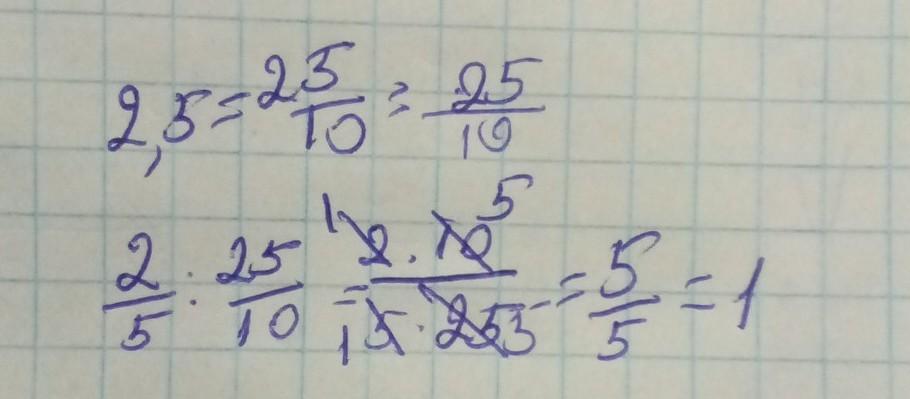 2,5 = 2 5/10 = 25/10
2/5 : 25/10 = (1 2 · 10 5)/(1 5 · 25 5) = 5/5 = 1